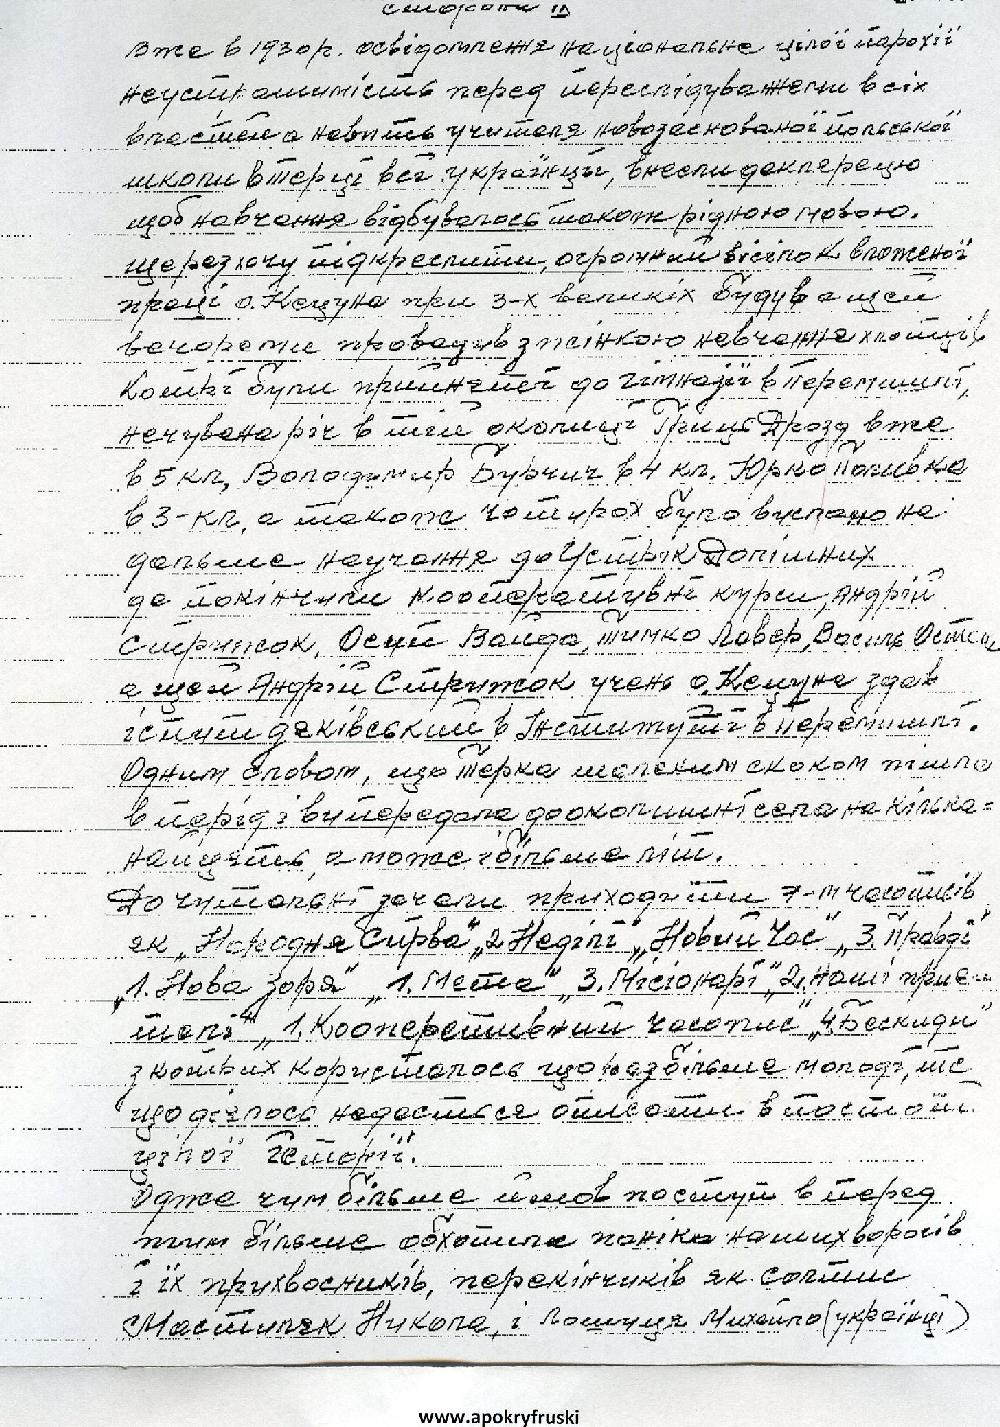 сторона
Вже в 1930 р. освідомленя національне цілої парохії
неустрашимість перед переслідуваженм всіх
властей а навить учителя новозаснованої польської
школи в Терці всі українці, внесли деклерецю
щоб навчання відбувалось также рідною мовою.
ще раз хочу підкреслити, огромний висілок вложеної
праці о. Кецуна при 3-х великіх будув а щей
вечореми провадив з жінкою навчання хлопців
Котрі були прийнятеі до гімназії в Перемишлі,
нечувана річ в тій околиці Гриць Дрозд вже
в 5 кл, Володимир Бурчич в 4 кл. Юрко Поливка
в 3-кл, а також чотирох було выслано на
дальше научання до Устрік Долішних
де покінчили кооперативні курси, Андрій
Стрижок, Осип Вайда, Тимко Лавер, Василь
а щей Андрій Стрижок учень о. Кецуна здав
іспит дяківський в Інституті в Перемишлі.
Одним словом, що Терка шаленим скоком пішла
в перід і випередала дооколишні села на кілька=
найцять, а може і більше літ.
До читальні зачали приходити 7-м часописів
як „Народня Справа" „2 Неділі" „Новий Час" „3. Правді"
„1. Нова Зоря" „1. Мета" „3. Місіонарі" „2. Наші прия-
телі" „1. Кооперативний Часопис" „4. Бескиди"
з котрих користалось що найбільше молоді, те
що діялось недасться описати в
цілої історії.
Одже чим більше йшов поступ в перед
тим більше обхотила паніка наших ворогів
і їх прихвосників, перекінчиків як солтис
Мастиляк Никола, і Лошиця Михайло (українці)
www.apokryfruski